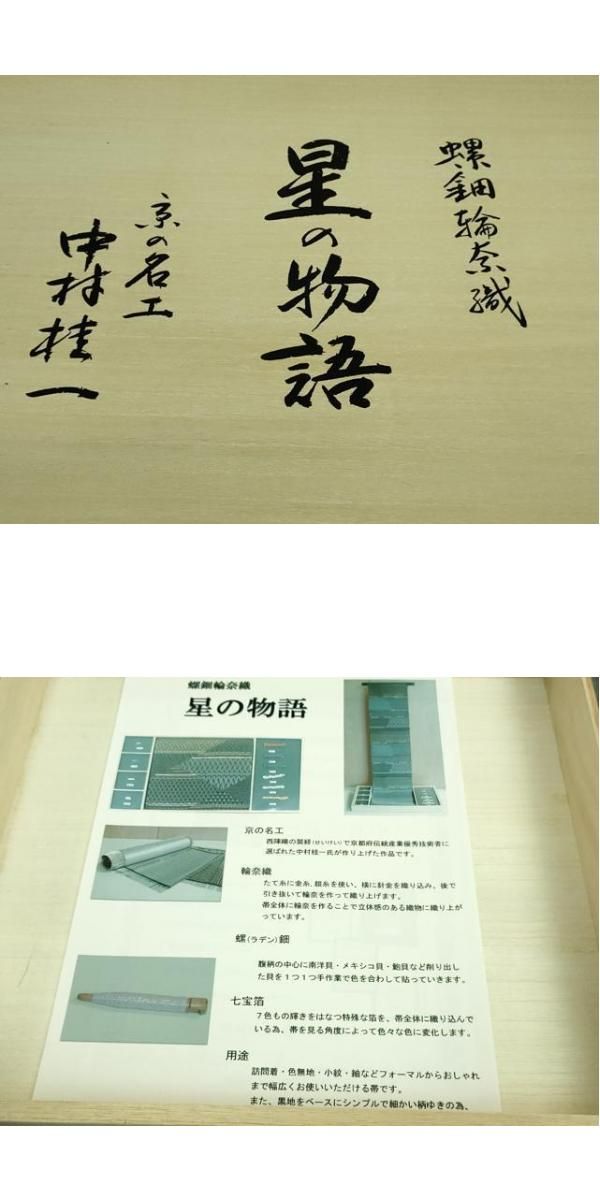 螺鈿輪奈織
星の物語
京の名工
中村桂一
螺鈿輪奈織
星の物語
京の名工
西陣織の製経(せいけい)で京都府伝統産業優秀技術者に
選ばれた中村桂一氏が作り上げた作品です。
輪奈織
たて糸に金糸、銀糸を使い、横に針金を織り込み、後で
引き抜いて輪奈を作って織り上げます。
帯全体に輪奈を作ることで立体感のある織物に織り上が
っています。
螺(ラデン)鈿
腹柄の中心に南洋貝・メキシコ貝・鮑貝など削り出し
た貝を1つ1つ手作業で色を合わして貼っていきます。
七宝箔
7色もの輝きをはなつ特殊な箔を、帯全体に織り込んで
いる為、帯を見る角度によって色々な色に変化します。
用途
訪問着・色無地・小紋・紬などフォーマルからおしゃれ
まで幅広くお使いいただける帯です。
また、黒地をベースにシンプルで細かい柄ゆきの為、